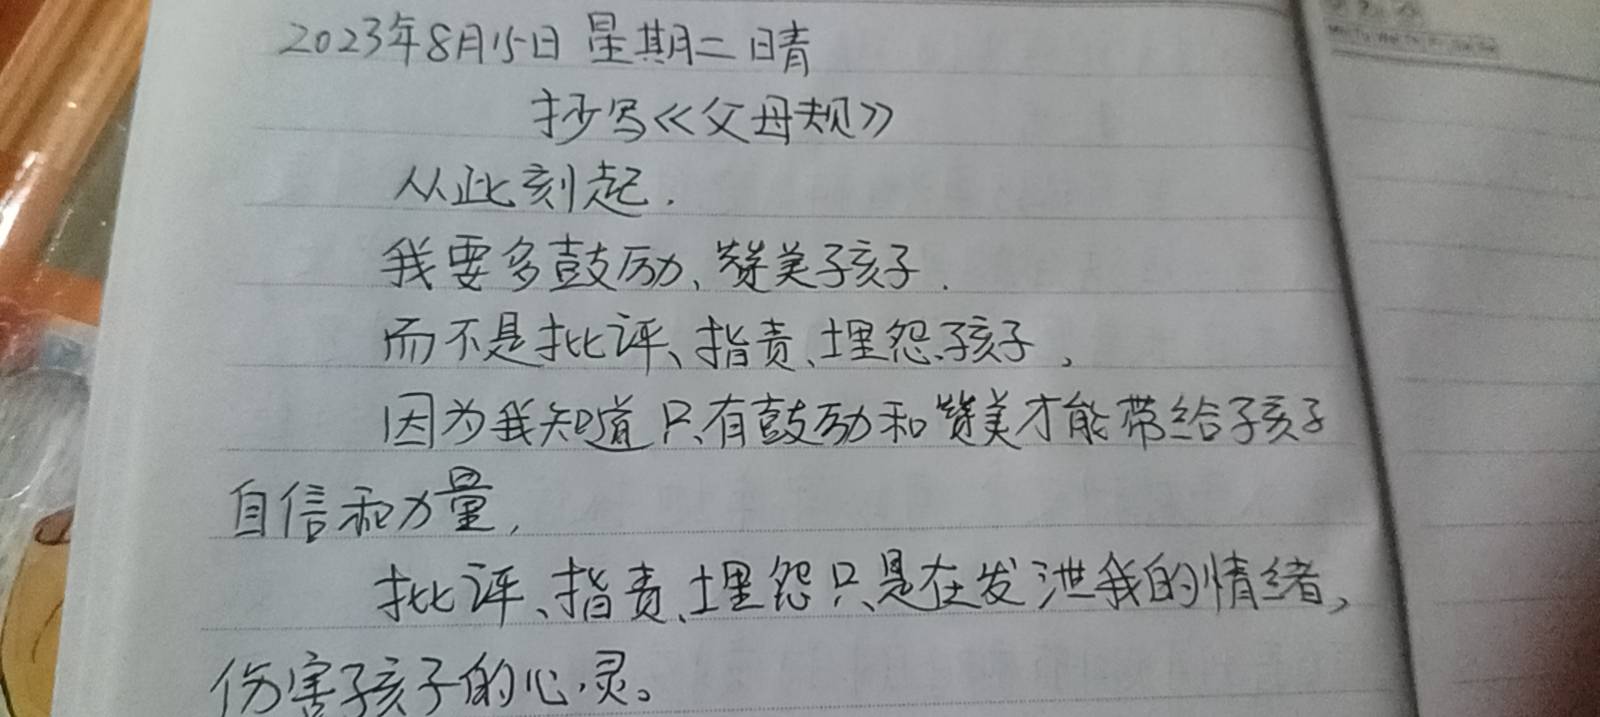 2023年8月15日 星期二 晴
抄写《父母规》
从此刻起.
我要多鼓励、赞美孩子.
而不是批评、指责、埋怨孩子,
因为我知道只有鼓励和赞美才能带给孩子
自信和力量,
批评、指责、埋怨只是在发泄我的情绪,
伤害孩子的心灵。